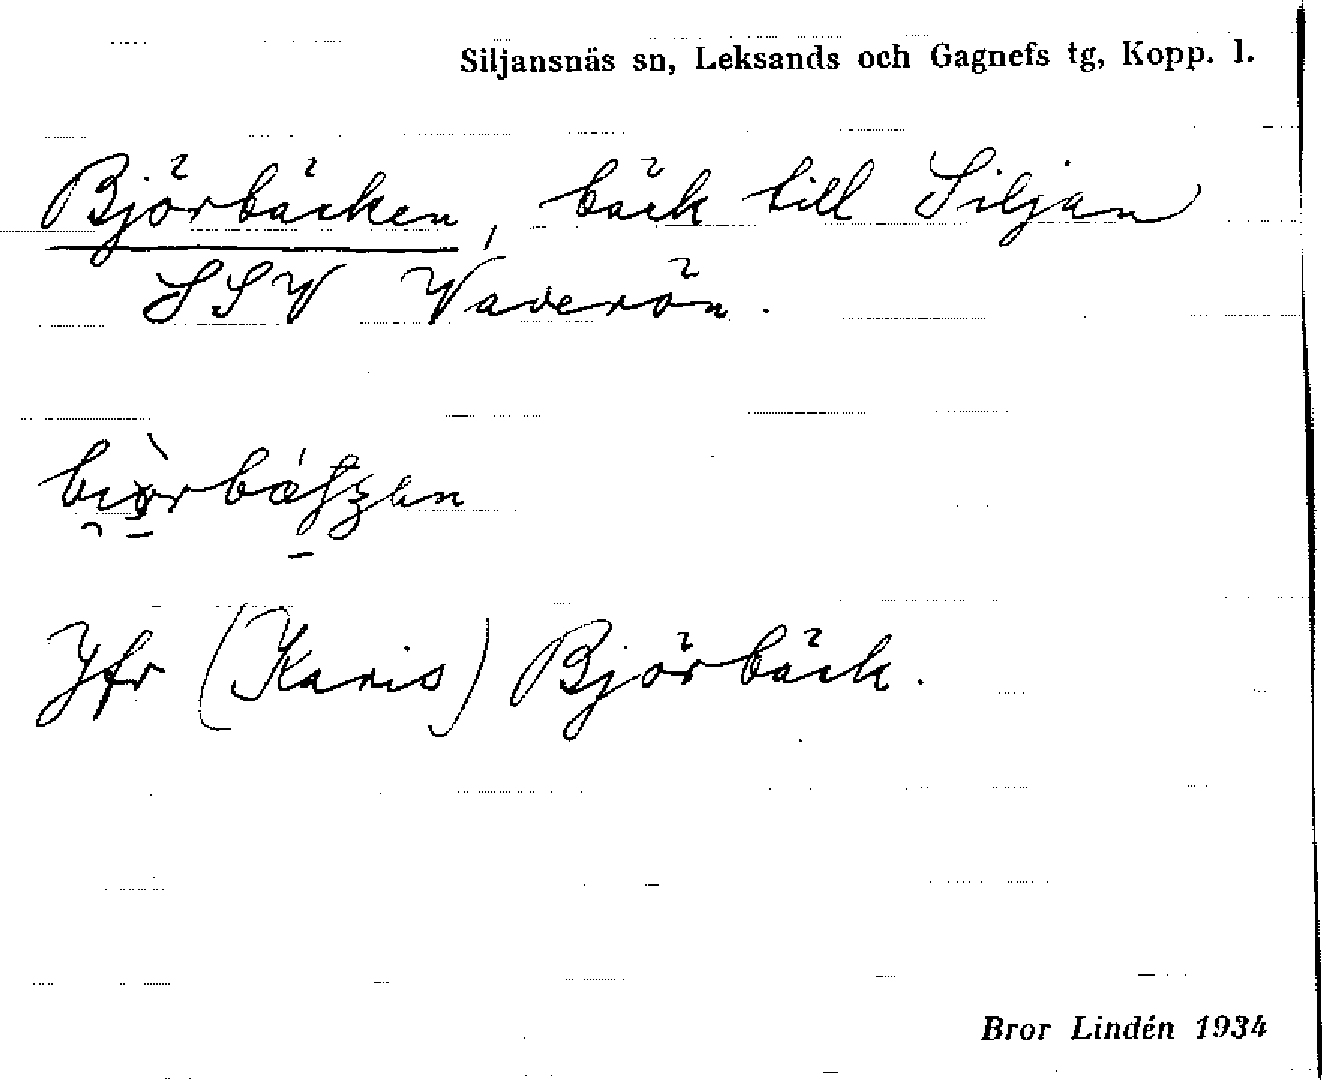 Siljansnäs sn, Leksands och Gagnefs tg, Kopp. l.
Björbäcken, bäck till Siljan
SSV Waverön.
Jfr (Karis) Björbäck.
Bror Lindén 1934